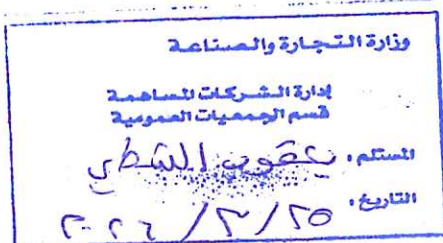 وزارة التجارة والصناعة
إدارة الشركات المساهمة
قسم الجمعيات العمومية
المستلم: يعقوب الشطي
التاريخ: ٢٠٢٤/٣/٢٥